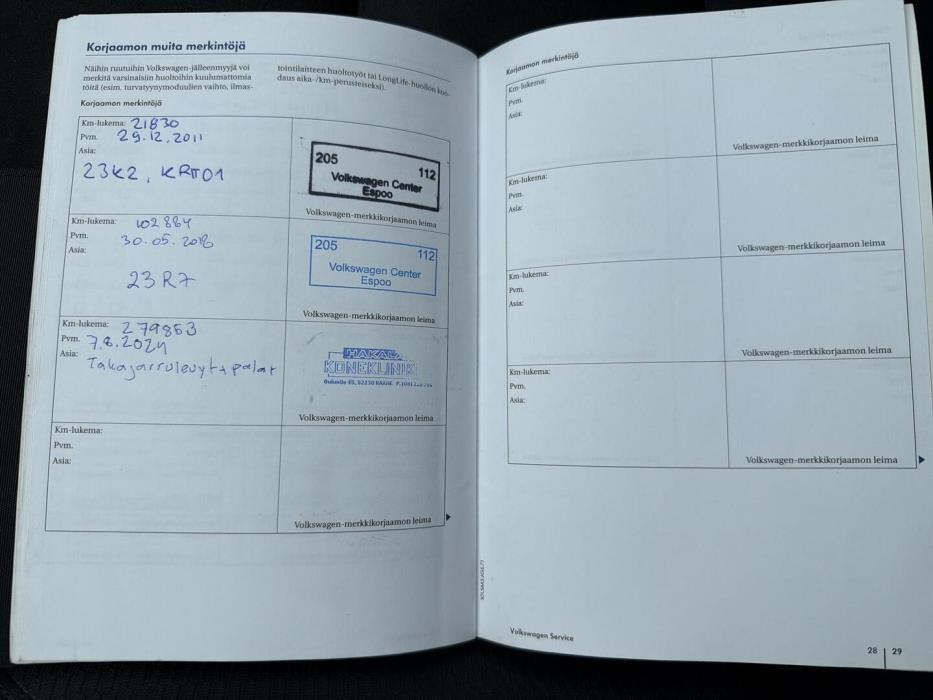 Korjaamon muita merkintöjä
Näihin ruutuihin Volkswagen-jälleenmyyjä voi
merkitä varsinaisiin huoltoihin kuulumattomia
töitä (esim. turvatyynymoduulien vaihto, ilmas-
tointilaitteen huoltotyöt tai LongLife-huollon koo-
daus aika-/km-perusteiseksi).
Korjaamon merkintöjä
Km-lukema: 21830
Pvm. 29.12.2011
Asia:
23K2, KRT01
205
112
Volkswagen Center
Espoo
Volkswagen-merkkikorjaamon leima
Km-lukema: 102884
Pvm. 30.05.2016
Asia:
23R7
205
112
Volkswagen Center
Espoo
Volkswagen-merkkikorjaamon leima
Km-lukema: 279853
Pvm. 7.8.2024
Asia: Takajarrulevyt + palat
HAKALA
KONEKLINIK
Volkswagen-merkkikorjaamon leima
Km-lukema:
Pvm.
Asia:
Volkswagen-merkkikorjaamon leima
Korjaamon merkintöjä
Km-lukema:
Pvm.
Asia:
Volkswagen-merkkikorjaamon leima
Km-lukema:
Pvm.
Asia:
Volkswagen-merkkikorjaamon leima
Km-lukema:
Pvm.
Asia:
Volkswagen-merkkikorjaamon leima
Km-lukema:
Pvm.
Asia:
Volkswagen-merkkikorjaamon leima
Volkswagen Service
28 | 29